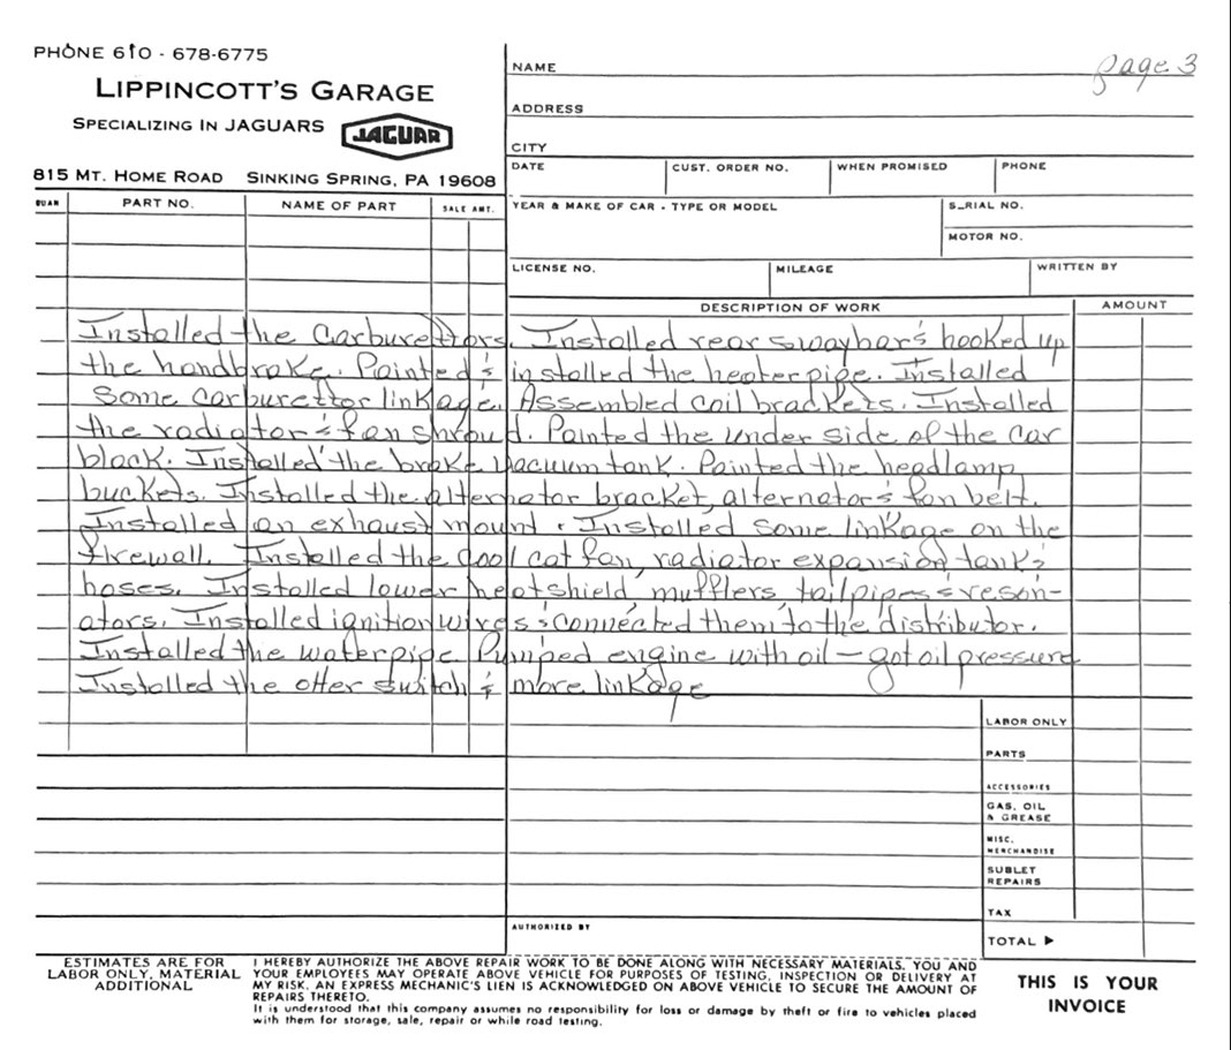 PHONE 610 - 678-6775
LIPPINCOTT'S GARAGE
SPECIALIZING IN JAGUARS
JAGUAR
815 MT. HOME ROAD SINKING SPRING, PA 19608
NAME
page 3
ADDRESS
CITY
DATE CUST. ORDER NO. WHEN PROMISED PHONE
QUAN PART NO. NAME OF PART SALE AMT.
YEAR & MAKE OF CAR - TYPE OR MODEL S_RIAL NO.
MOTOR NO.
LICENSE NO. MILEAGE WRITTEN BY
DESCRIPTION OF WORK AMOUNT
Installed the Carburettors. Installed rear swaybar & hooked up
the handbrake. Painted & installed the heater pipe. Installed
some carburettor linkage. Assembled coil brackets. Installed
the radiator & fan shroud. Painted the under side of the car
black. Installed the brake vacuum tank. Painted the headlamp
buckets. Installed the alternator bracket, alternator & fan belt.
Installed an exhaust mount. Installed some linkage on the
firewall. Installed the cool cat fan, radiator expansion tank &
hoses. Installed lower heatshield, mufflers, tailpipes & reson-
ators. Installed ignition wires & connected them to the distributor.
Installed the waterpipe Pumped engine with oil — got oil pressure
Installed the otter switch & more linkage
LABOR ONLY
PARTS
ACCESSORIES
GAS, OIL
& GREASE
MISC.
MERCHANDISE
SUBLET
REPAIRS
TAX
AUTHORIZED BY
TOTAL ▶
ESTIMATES ARE FOR
LABOR ONLY, MATERIAL
ADDITIONAL
I HEREBY AUTHORIZE THE ABOVE REPAIR WORK TO BE DONE ALONG WITH NECESSARY MATERIALS. YOU AND
YOUR EMPLOYEES MAY OPERATE ABOVE VEHICLE FOR PURPOSES OF TESTING, INSPECTION OR DELIVERY AT
MY RISK. AN EXPRESS MECHANIC'S LIEN IS ACKNOWLEDGED ON ABOVE VEHICLE TO SECURE THE AMOUNT OF
REPAIRS THERETO.
It is understood that this company assumes no responsibility for loss or damage by theft or fire to vehicles placed
with them for storage, sale, repair or while road testing.
THIS IS YOUR
INVOICE